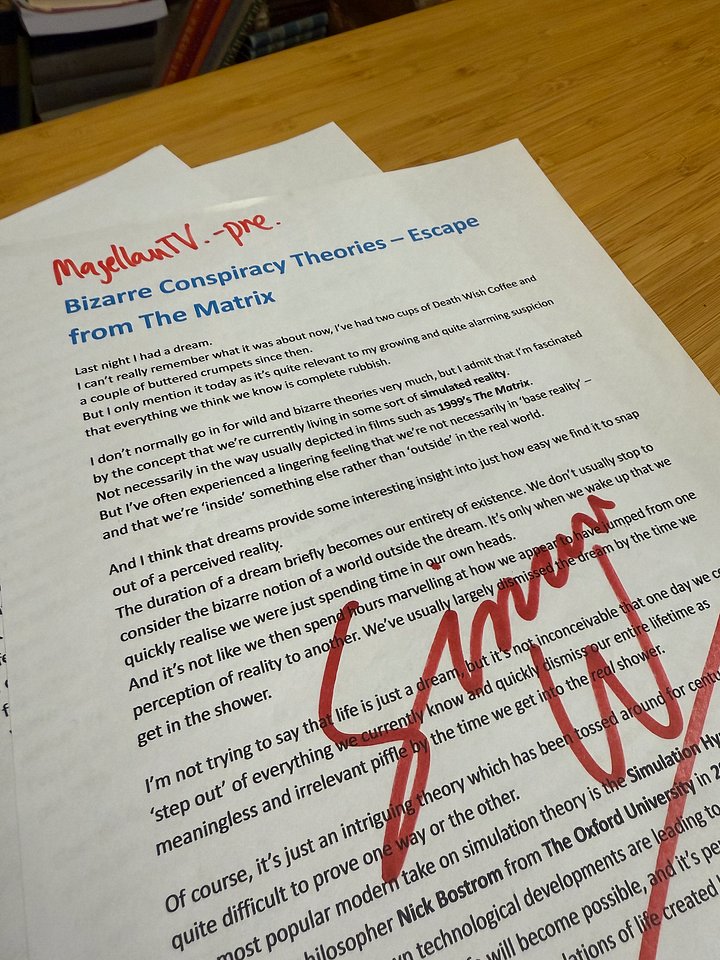 MagellanTV. -pre.
Bizarre Conspiracy Theories – Escape
from The Matrix
Last night I had a dream.
I can't really remember what it was about now, I've had two cups of Death Wish Coffee and
a couple of buttered crumpets since then.
But I only mention it today as it's quite relevant to my growing and quite alarming suspicion
that everything we think we know is complete rubbish.
I don't normally go in for wild and bizarre theories very much, but I admit that I'm fascinated
by the concept that we're currently living in some sort of simulated reality.
Not necessarily in the way usually depicted in films such as 1999's The Matrix.
But I've often experienced a lingering feeling that we're not necessarily in 'base reality' –
and that we're 'inside' something else rather than 'outside' in the real world.
And I think that dreams provide some interesting insight into just how easy we find it to snap
out of a perceived reality.
The duration of a dream briefly becomes our entirety of existence. We don't usually stop to
consider the bizarre notion of a world outside the dream. It's only when we wake up that we
quickly realise we were just spending time in our own heads.
And it's not like we then spend hours marvelling at how we appear to have jumped from one
perception of reality to another. We've usually largely dismissed the dream by the time we
get in the shower.
I'm not trying to say that life is just a dream, but it's not inconceivable that one day we
'step out' of everything we currently know and quickly dismiss our entire lifetime as
meaningless and irrelevant piffle by the time we get into the real shower.
Of course, it's just an intriguing theory which has been tossed around for
quite difficult to prove one way or the other.
most popular modern take on simulation theory is the Simulation
Nick Bostrom from The Oxford University in
technological developments are leading to
will become possible, and it's
of life created
Simon
W